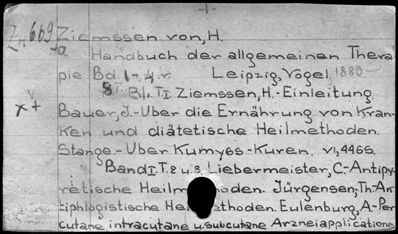 -1-
Zn 669 Ziemssen von, H.
a Handbuch der allgemeinen Thera
pie Bd. 1-4. Leipzig, Vogel. 1880
8 T. B.I. T.I. Ziemssen, H.-Einleitung
Bauer, J.-Uber die Ernährung von Kran-
ken und diätetische Heilmethoden.
Stange.-Uber Kumyss-Kuren. VI, 446S.
Band I. T. 2 u. 3. Liebermeister, C-Antipy-
retische Heilm oden. Jürgensen, Th.-An-
tiphlogistische He thoden. Eulenburg, A-Per
cutane intracutane u. subcutane Arzneiapplicatione